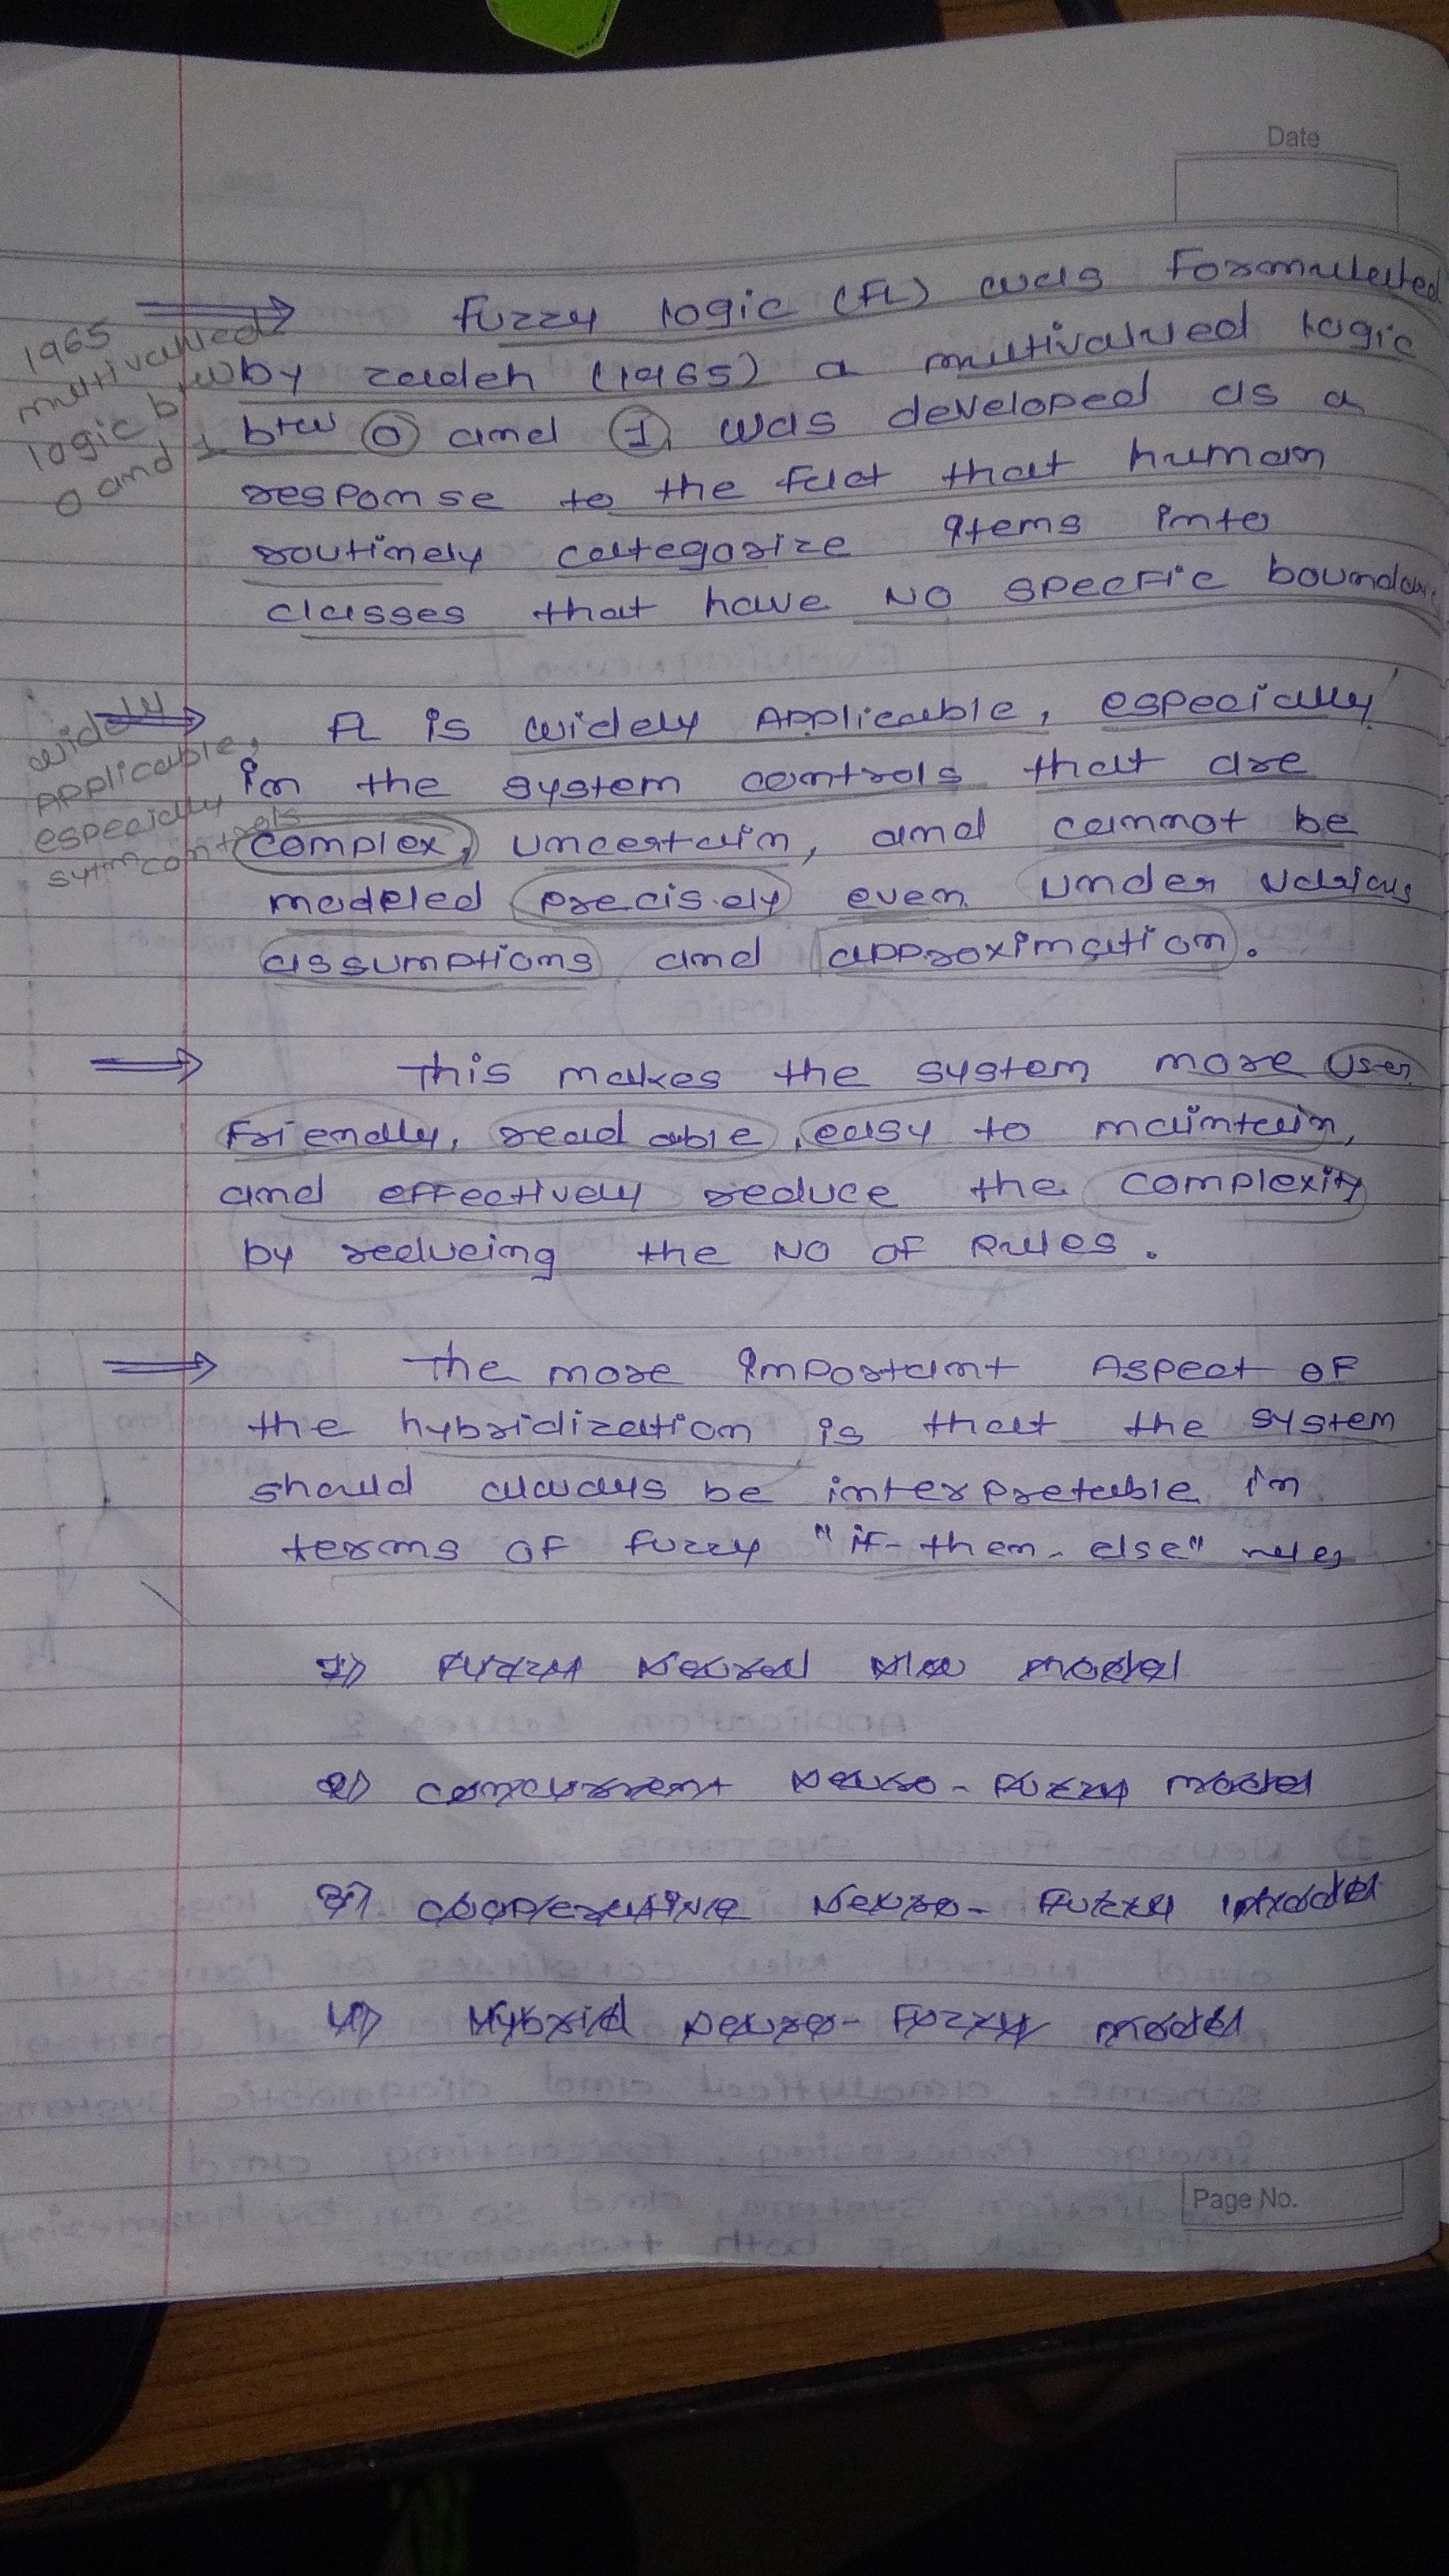 Date
Fuzzy logic (FL) was Formulated
by zadeh (1965) a multivalued logic
btw 0 and 1, was developed as a
response to the fact that human
routinely categorize items into
classes that have NO specfic boundary
1965
multivalued
logic btw
0 and 1
FL is widely Applicable, especially
in the system controls that are
complex, uncertain, and cannot be
modeled precisely even under various
assumptions and approximation.
widely
Applicable,
especially
sytm controls
This makes the system more user
friendly, readable, easy to maintain,
and effectively reduce the complexity
by reducing the NO OF Rules.
The more important Aspect OF
the hybridization is that the system
should always be interpretable in
terms OF fuzzy "if-then-else" rules
1) Fuzzy Neural N/w model
2) concurrent Neuro-Fuzzy model
3) cooperative Neuro-Fuzzy model
4) Hybrid Neuro-Fuzzy model
Page No.